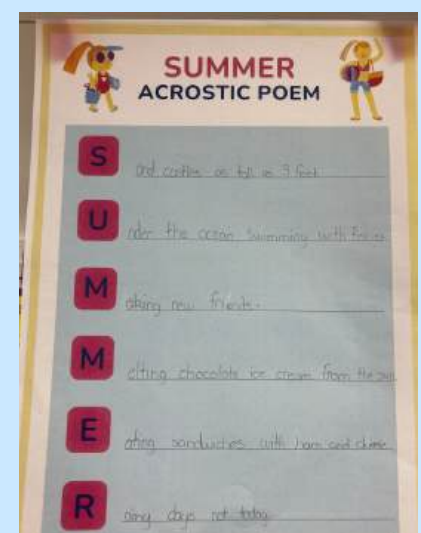 SUMMER
ACROSTIC POEM
S and castles as tall as 9 feet
U nder the ocean swimming with fishes
M aking new friends.
M elting chocolate ice cream from the sun
E ating sandwiches with ham and cheese
R ainy days not today